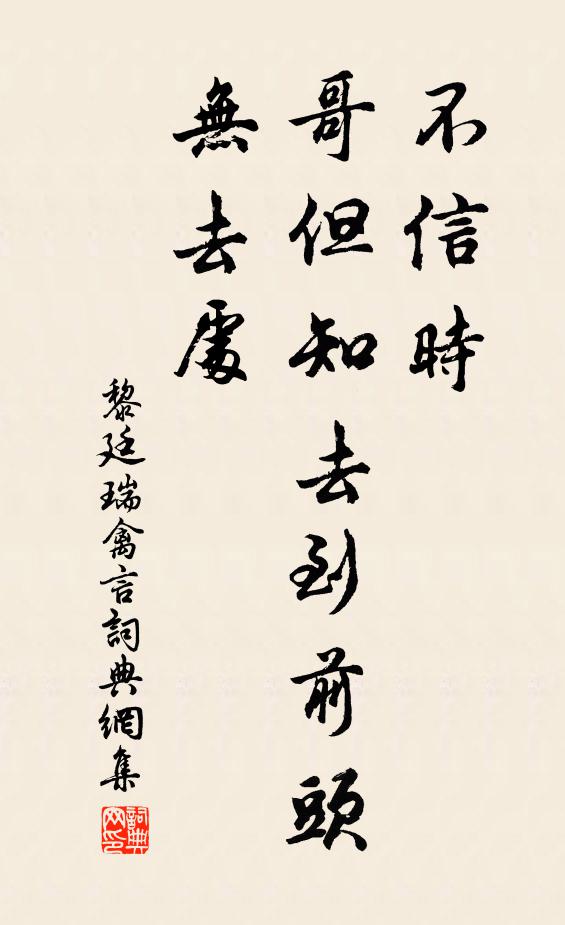 不信時
哥但知去到前頭
無去處
黎廷瑞禽言詞典網集
詞典網印